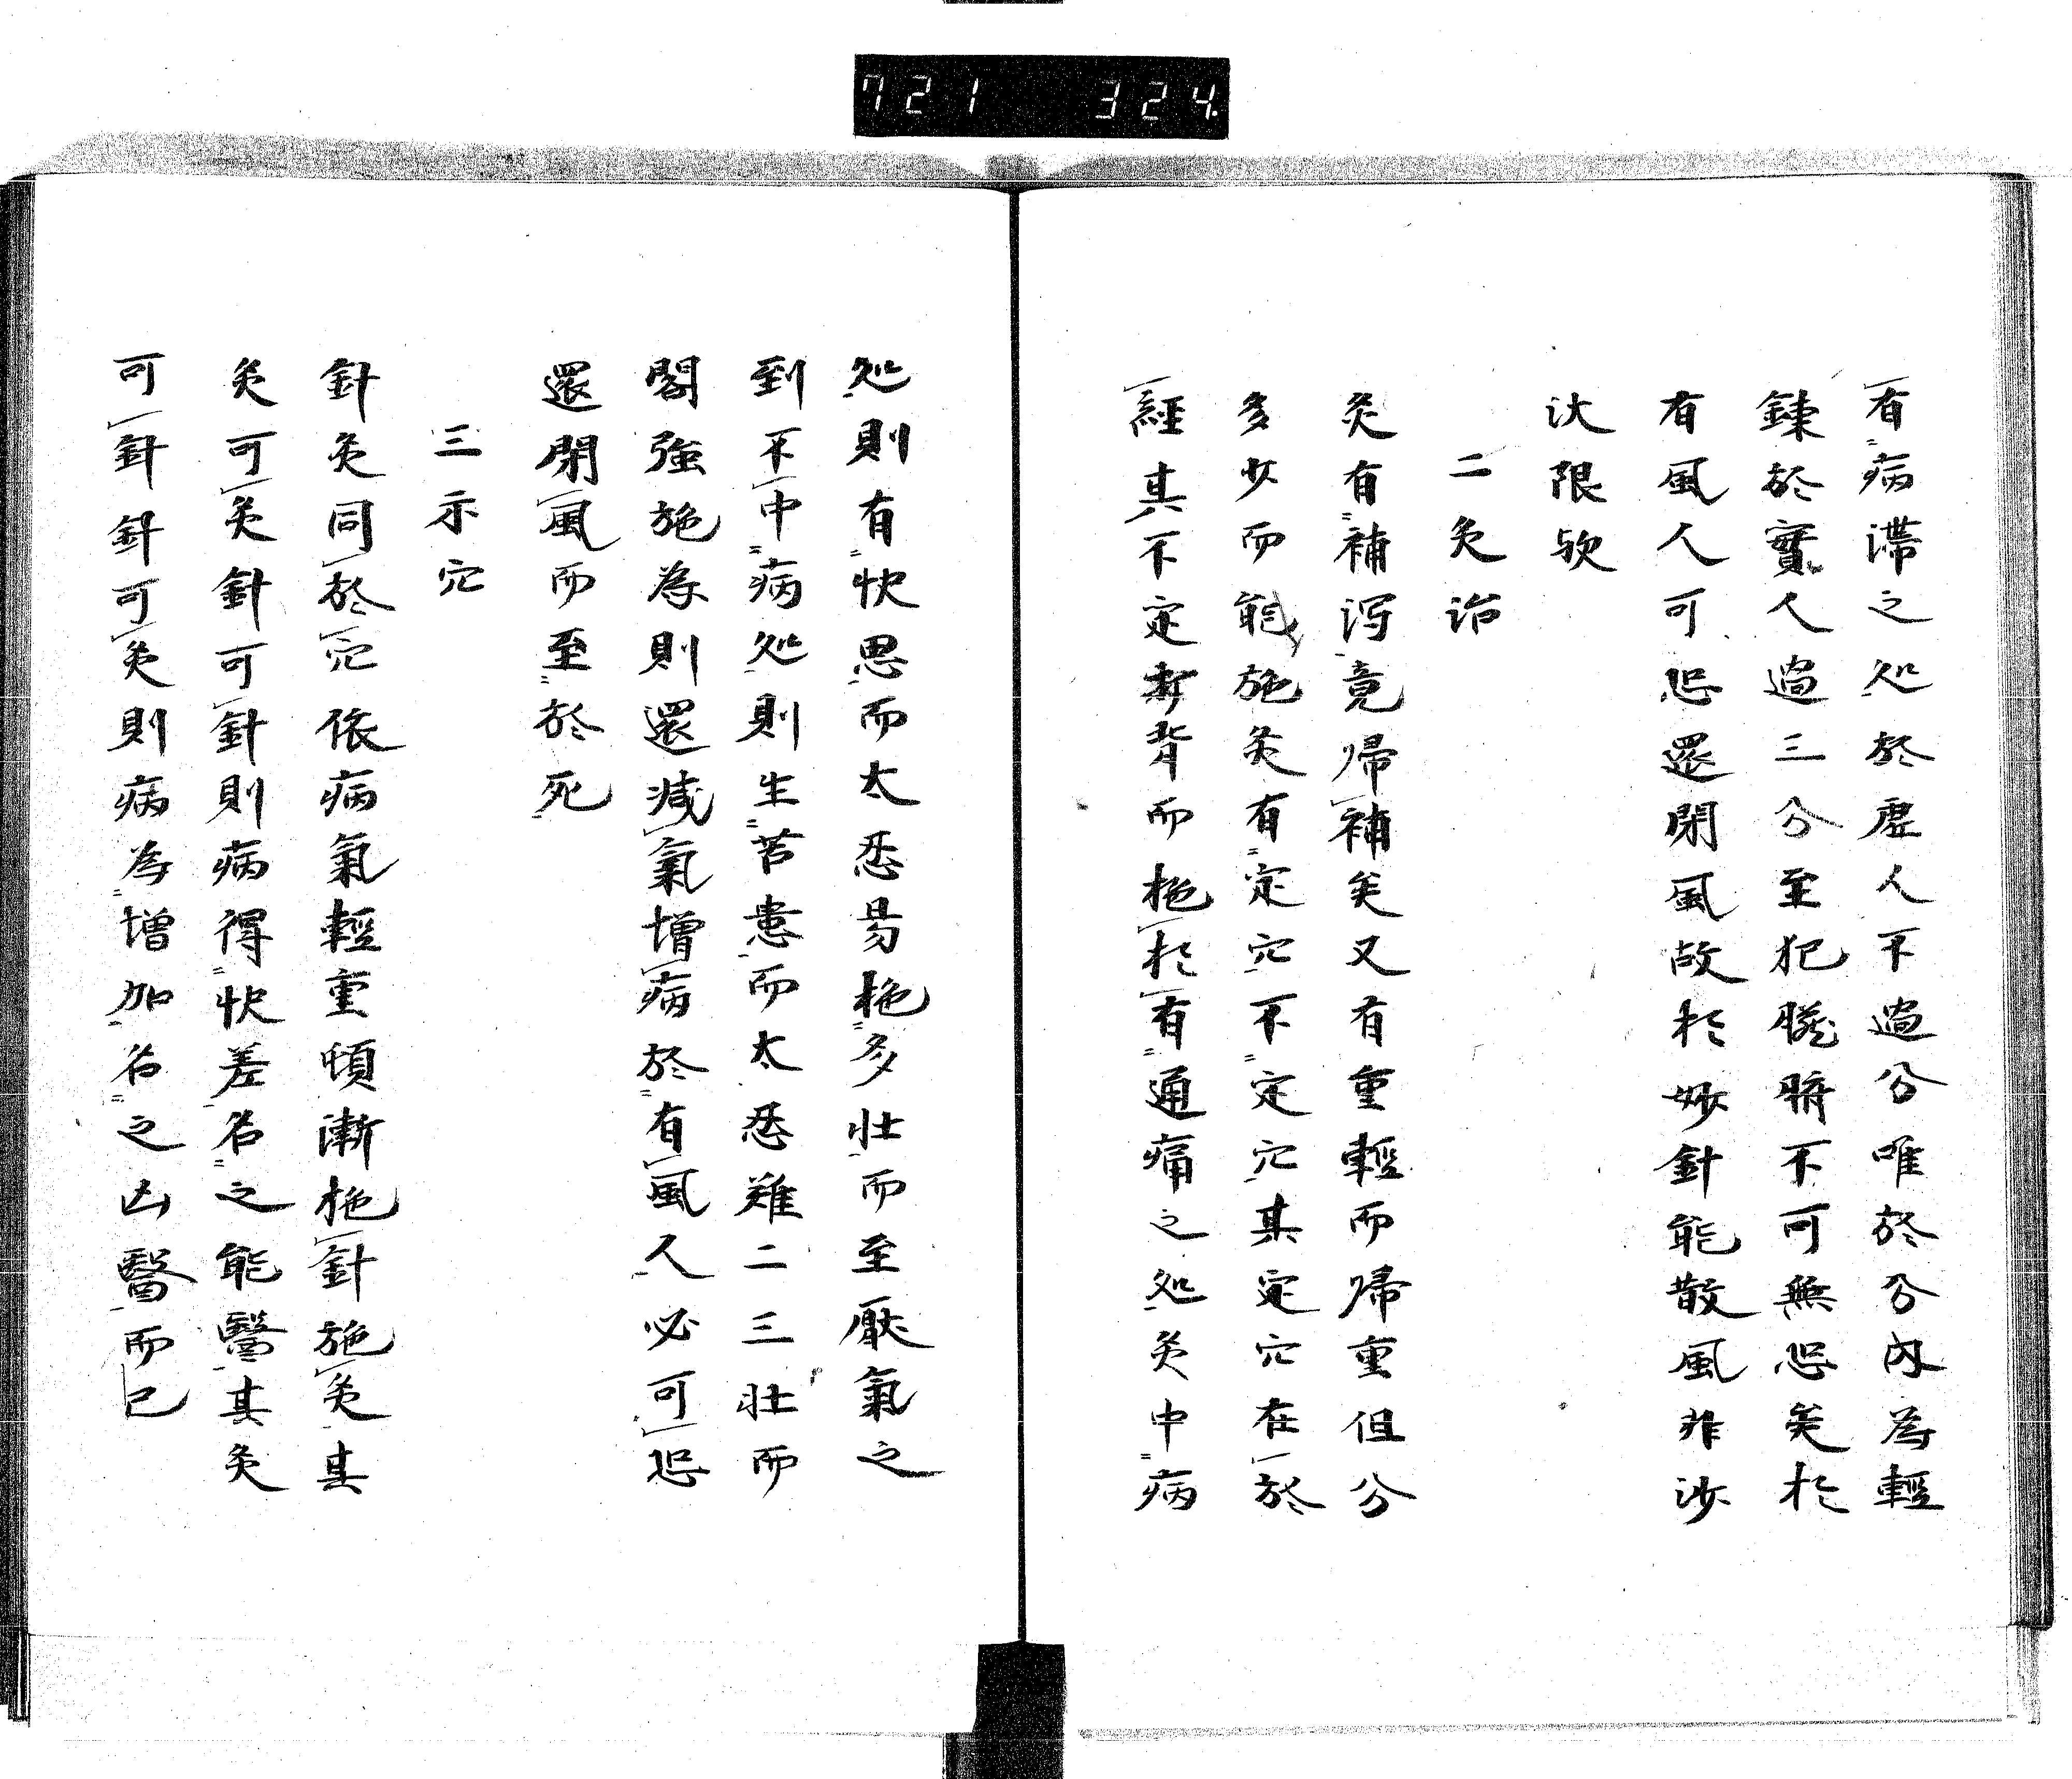 721 324.
有病滞之処於虚人不過分唯於分内為輕
錬於實人過三分至犯臓腑不可無恐矣於
有風人可恐還閉風故於妙針能散風非沙
汰限欤
二灸治
灸有補瀉竟帰補矣又有重輕而帰重但分
多少而能施灸有定穴不定穴其定穴在於
經其不定背而施於有通痛之処灸中病
処則有快思而太忍易施多壮而至厭氣之
到不中病処則生苦患而太忍難二三壮而
閣強施為則還減氣増病於有風人必可恐
還閉風而至於死
三示穴
針灸同於穴依病氣輕重頓漸施針施灸其
灸可灸針可針則病得快差名之能醫其灸
可針針可灸則病為増加名之凶醫而已